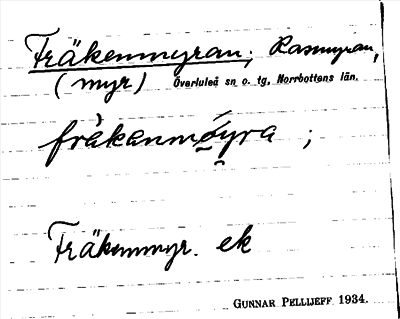 Fräkenmyran; Rasmyran,
(myr) Överluleå sn o. tg, Norrbottens län.
fräkenmøyra ;
Fräkenmyr. ek
GUNNAR PELLIJEFF 1934.